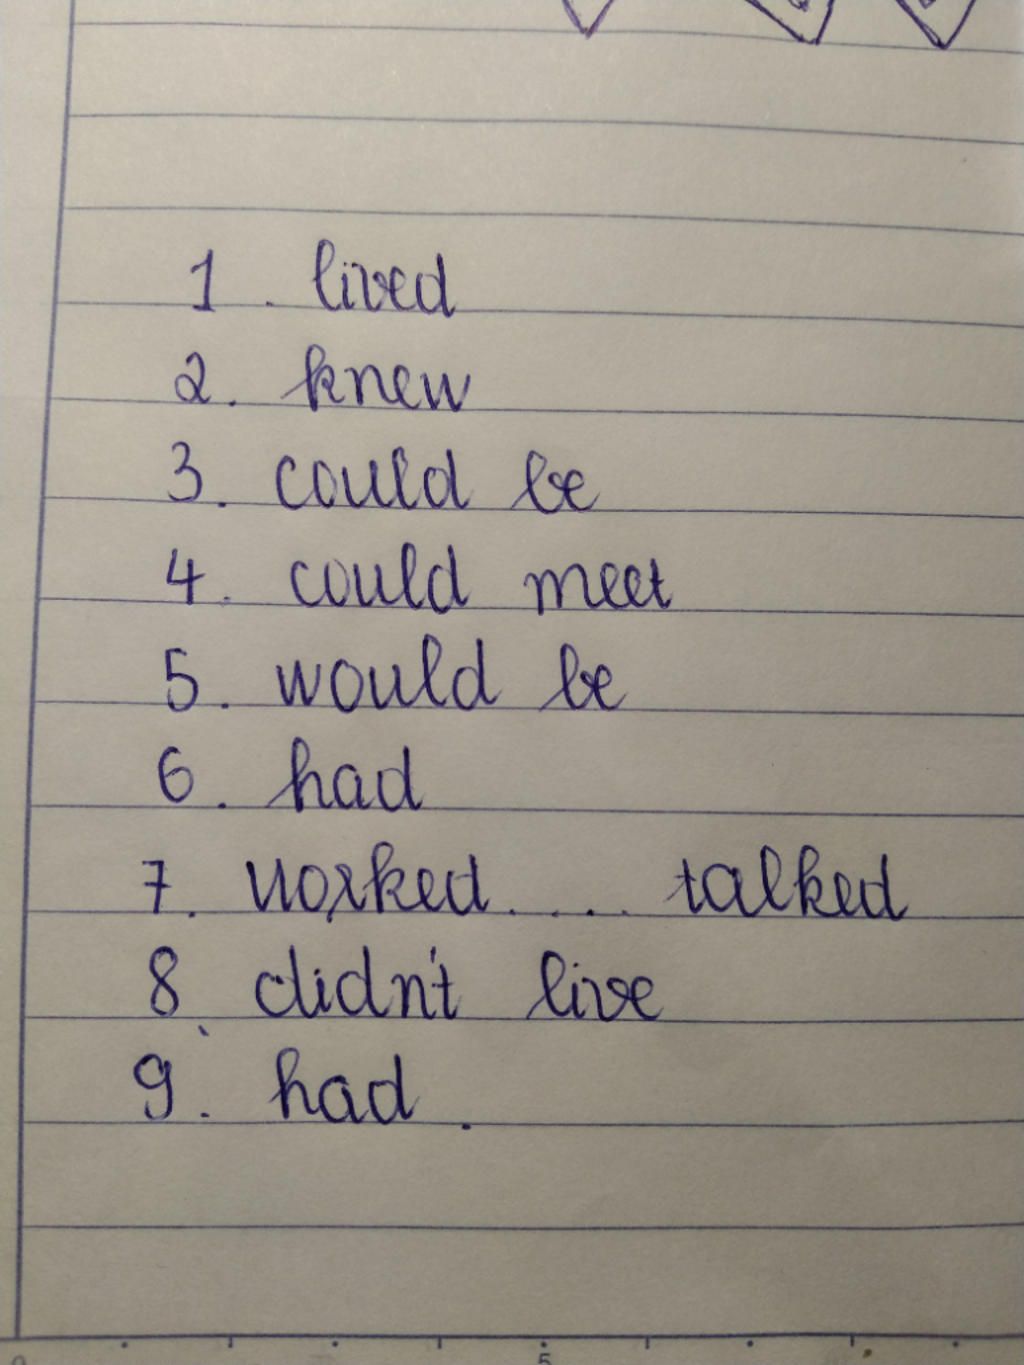 1. lived
2. knew
3. could be
4. could meet
5. would be
6. had
7. worked.... talked
8. didn't live
9. had.